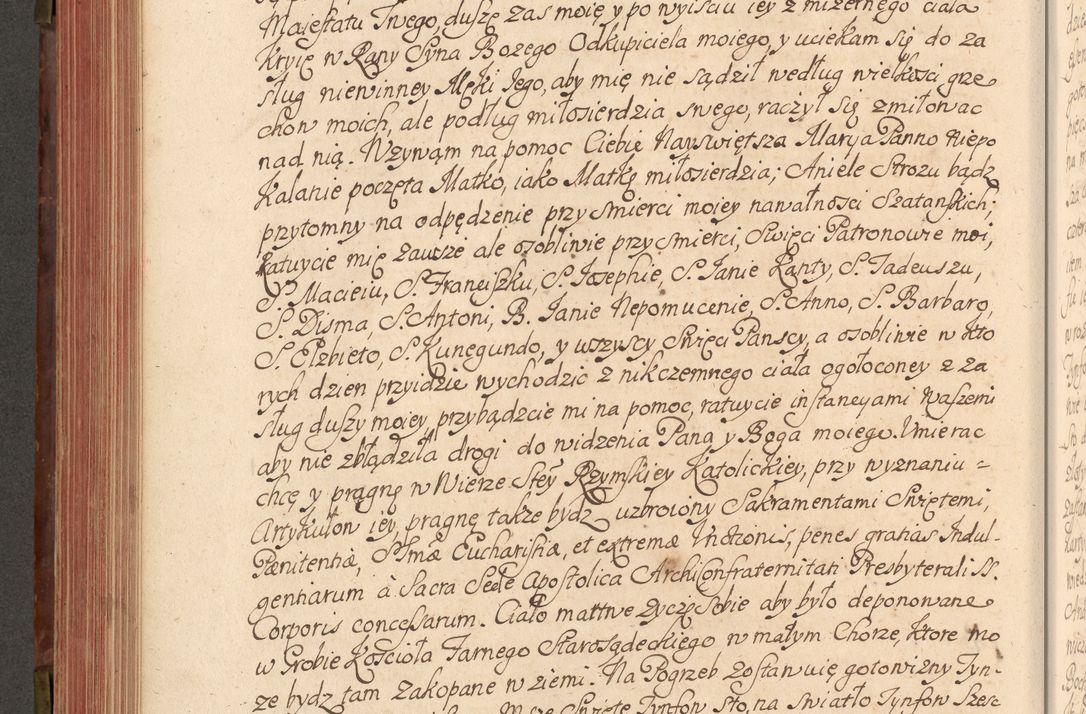 Majestatu Twego, duszę zas moię y po wyisciu iey z mizernego ciała
Kryię w Rany Syna Bozego Odkupiciela moiego, y uciekam się do za
sług niewinney Męki Jego, aby mię nie sądził według wielkosci grze
chow moich, ale podług miłosierdzia swego, raczył się zmiłowac
nad nią. Wzywąm na pomoc Ciebie Nayswiętsza Marya Panno Niepo
Kalanie poczęta Matko, iako Matkę miłosierdzia; Aniele Strozu bądz
przytomny na odpędzenie przy smierci moiey nawałnosci Szatanskich;
Ratuycie mię zawsze ale osobliwie przy smierci, Swięci Patronowie moi,
S. Macieiu, S. Franciszku, S. Josephie, S. Janie Kanty, S. Tadeuszu,
S. Disma, S. Antoni, B. Janie Nepomucenie, S. Anno, S. Barbaro,
S. Elzbieto, S. Kunegundo, y wszyscy Swięci Panscy, a osobliwie w kto
rych dzien przyidzie wychodzic z nikczemnego ciała ogołoconey z za
sług duszy moiey, przybądzcie mi na pomoc, ratuycie instancyami Waszemi
aby nie zbłądziła drogi do widzenia Pana y Boga moiego. Umierac
chcę y pragnę w Wierze Stey Rzymskiey Katolickiey, przy wyznaniu =
Artykułow iey, pragnę takze bydz uzbroiony Sakramentami Swiętemi,
Pænitentiæ, SSmæ Eucharistiæ, et extremæ Unctionis, penes gratias Indul-
gentiarum à Sacra Sede Apostolica Archiconfraternitati Presbyterali SS.
Corporis concessarum. Ciało martwe zyczę sobie aby było deponowane
w Grobie Koscioła Farnego Starosądeckiego w małym Chorze, ktore mo
ze bydz tam zakopane w ziemi. Na Pogrzeb zostawuię gotowizny Tyn-
Msze Swięte Tynfow sto, na swiatło Tynfow Szesc